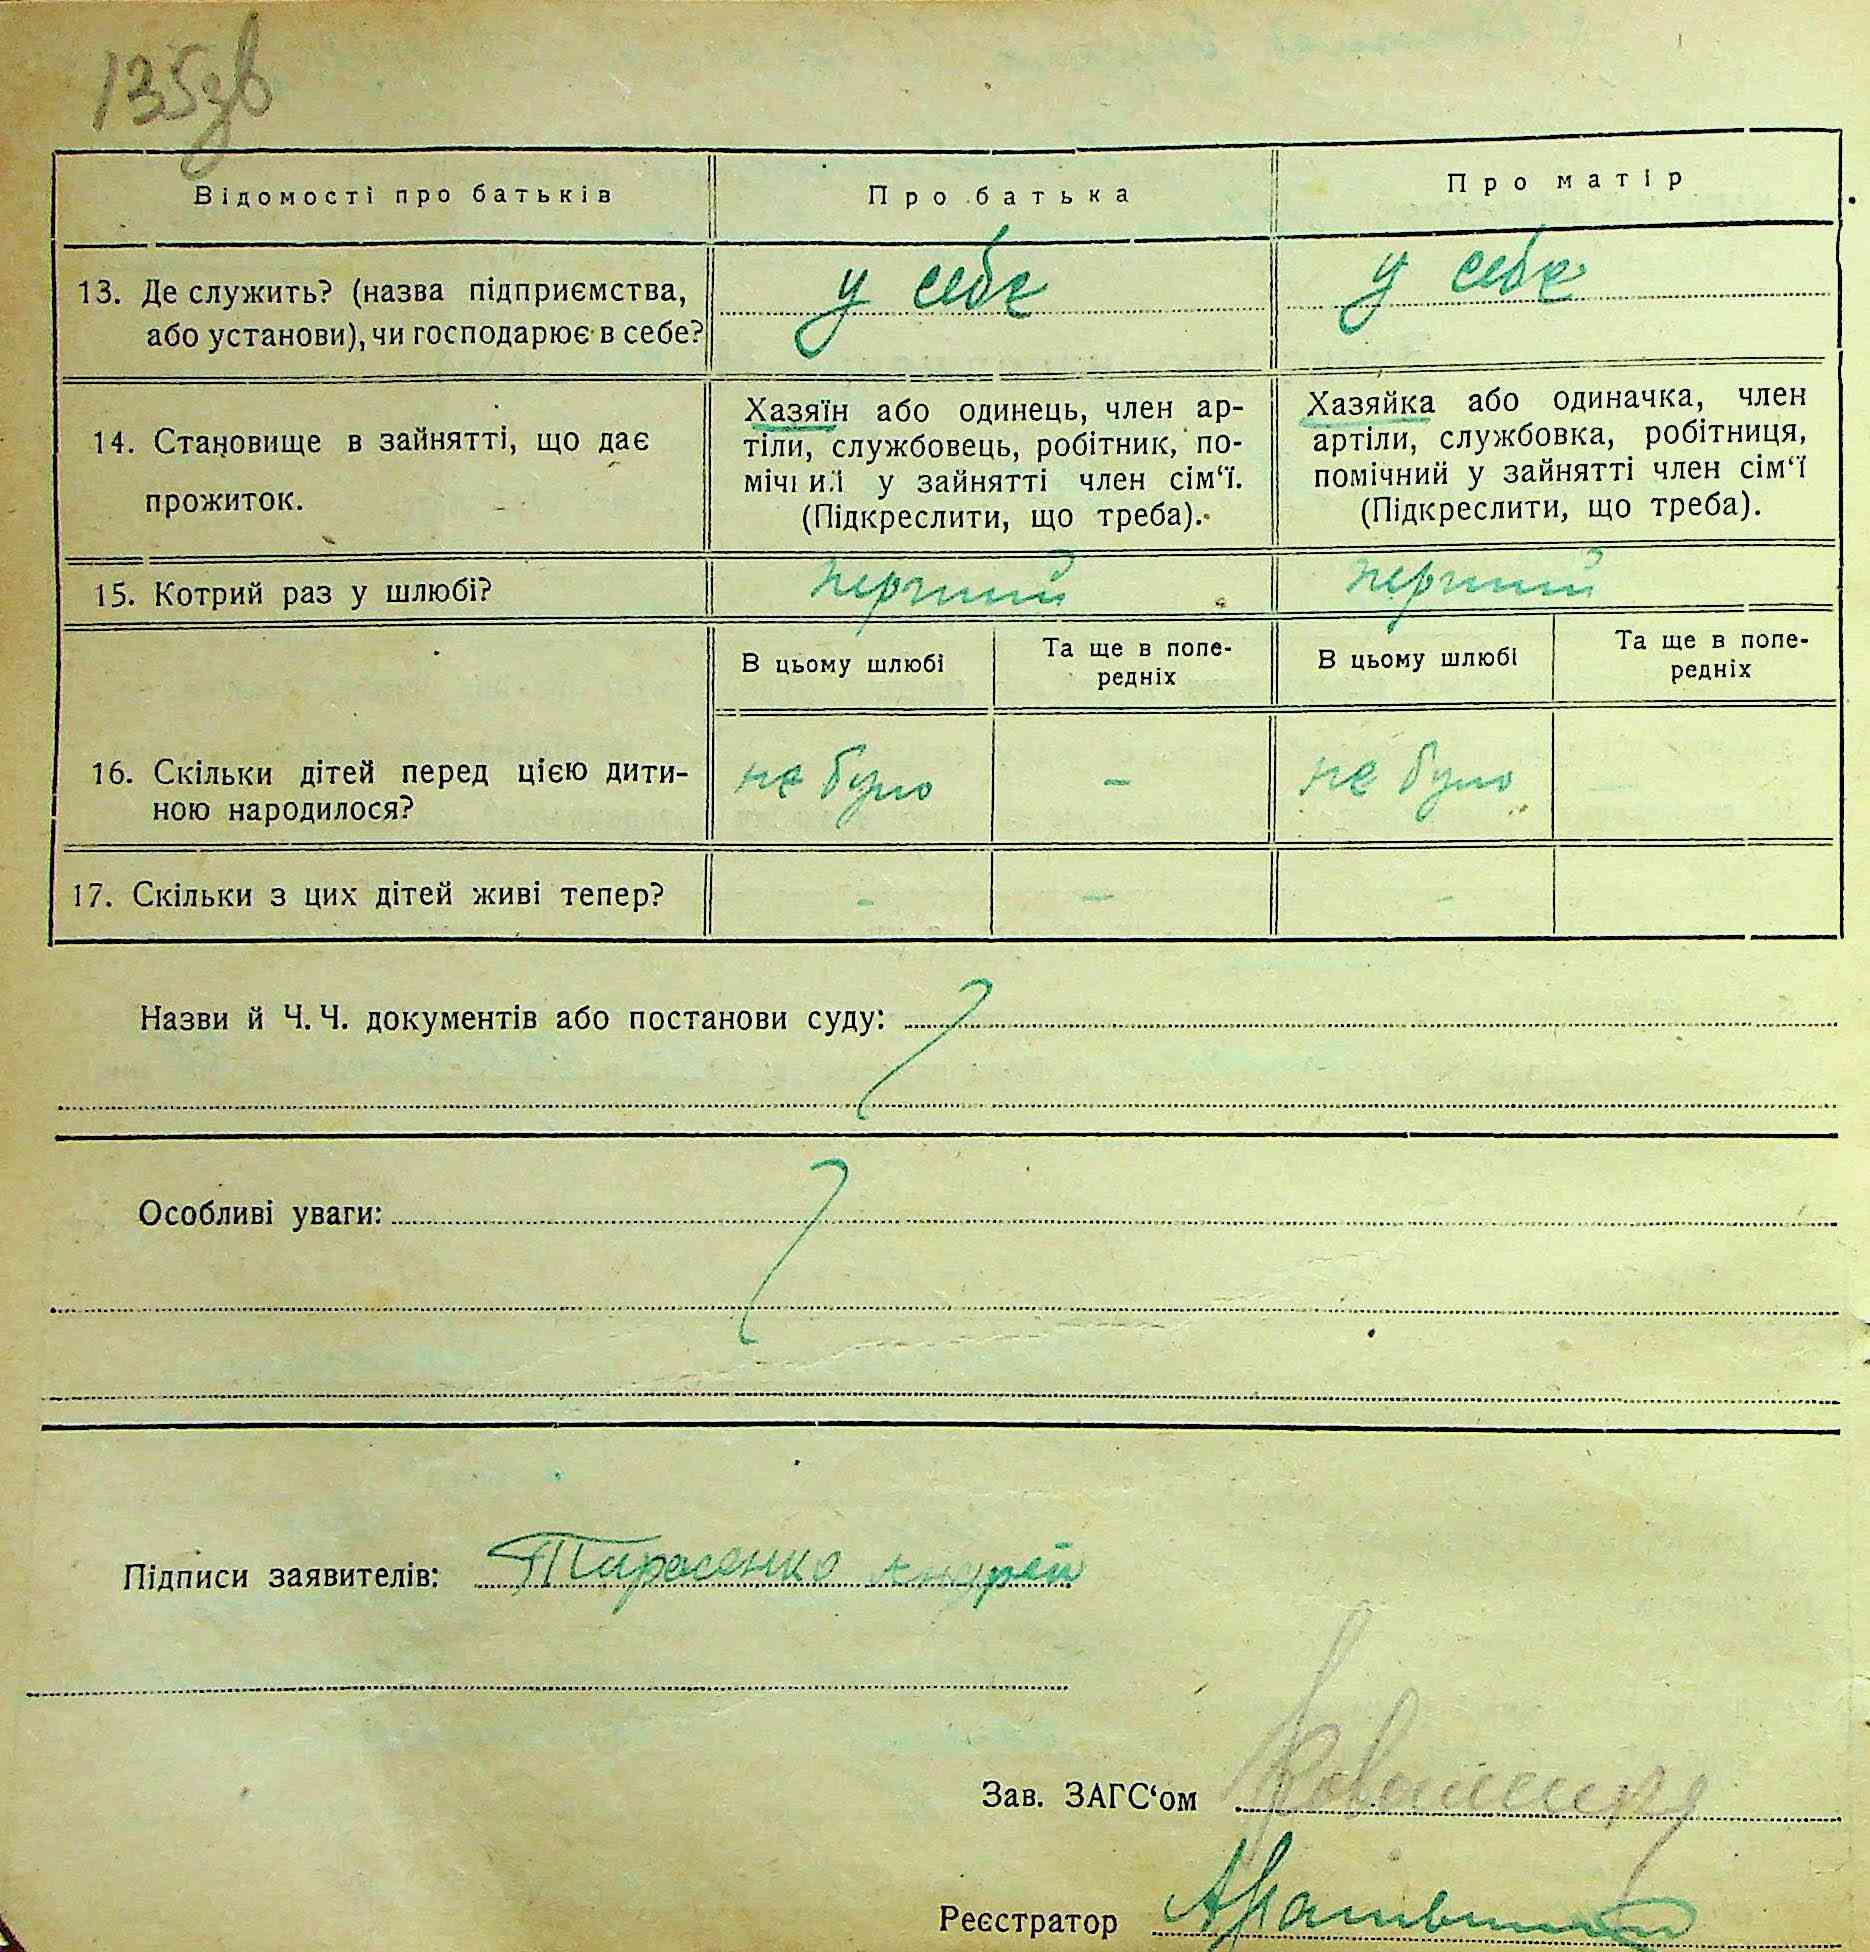 135зв
Відомості про батьків
Про батька
Про матір
13. Де служить? (назва підприємства,
або установи), чи господарює в себе?
у себе
у себе
14. Становище в зайнятті, що дає
прожиток.
Хазяїн або одинець, член ар-
тіли, службовець, робітник, по-
мічний у зайнятті член сім‘ї.
(Підкреслити, що треба).
Хазяйка або одиначка, член
артіли, службовка, робітниця,
помічний у зайнятті член сім‘ї
(Підкреслити, що треба).
15. Котрий раз у шлюбі?
перший
перший
В цьому шлюбі
Та ще в попе-
редніх
В цьому шлюбі
Та ще в попе-
редніх
16. Скільки дітей перед цією дити-
ною народилося?
не було
–
не було
–
17. Скільки з цих дітей живі тепер?
–
–
–
Назви й Ч. Ч. документів або постанови суду:
Особливі уваги:
Підписи заявителів: Тарасенко Андрей
Зав. ЗАГС‘ом
Реєстратор